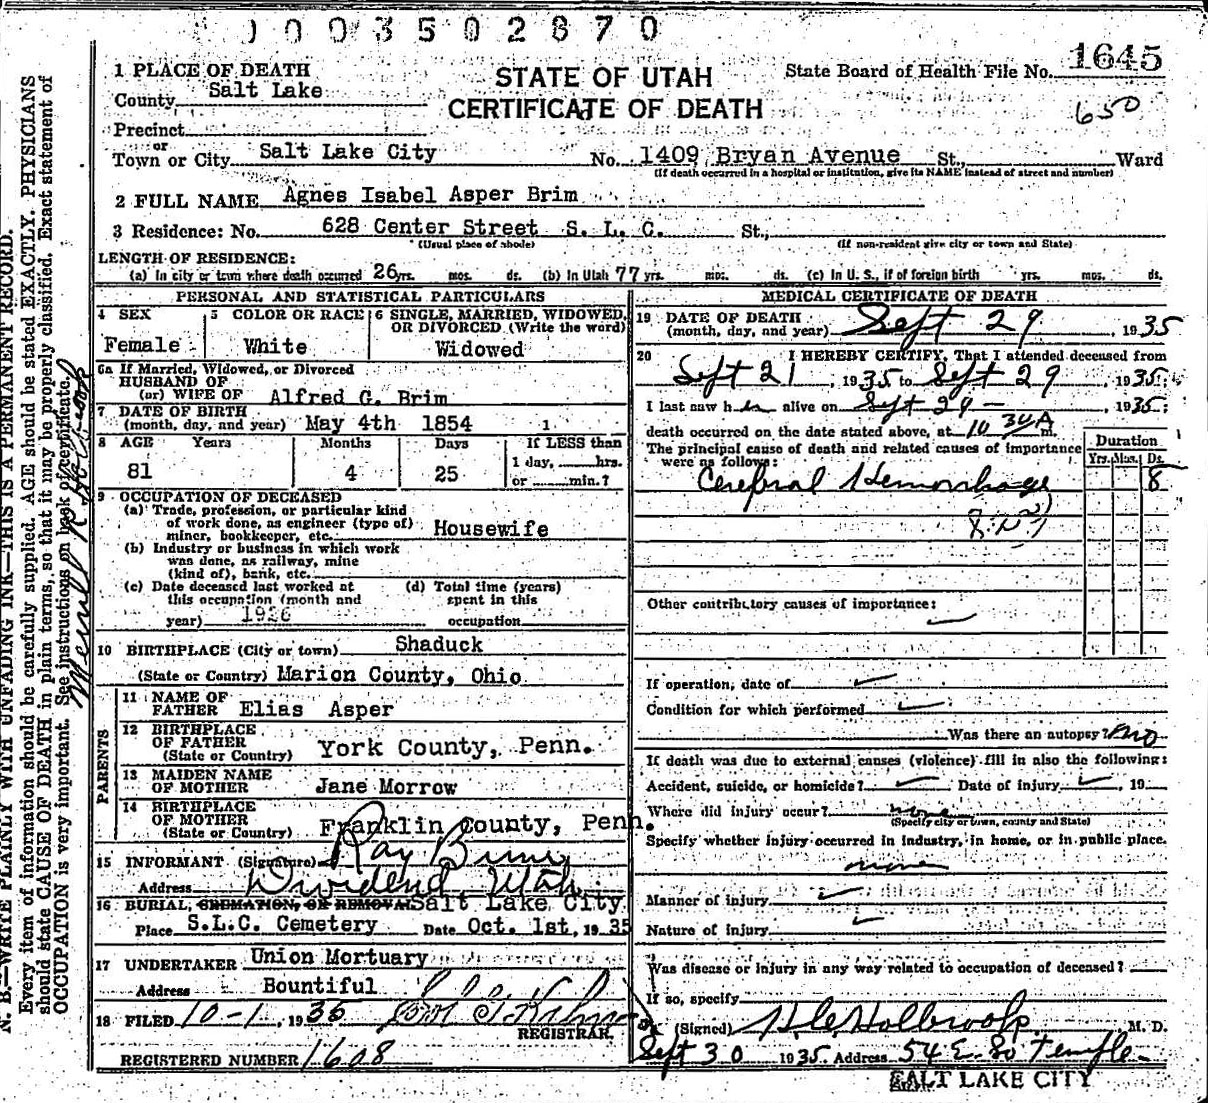 1003502870
1645
1 PLACE OF DEATH
STATE OF UTAH
State Board of Health File No.
County Salt Lake
CERTIFICATE OF DEATH
650
Precinct
or
Town or City Salt Lake City No. 1409 Bryan Avenue St., Ward
(If death occurred in a hospital or institution, give its NAME instead of street and number)
2 FULL NAME Agnes Isabel Asper Brim
3 Residence: No. 628 Center Street S. L. C. St.,
(Usual place of abode) (If non-resident give city or town and State)
LENGTH OF RESIDENCE:
(a) In city or town where death occurred 26 yrs. mos. ds. (b) In Utah 77 yrs. mos. ds. (c) In U. S., if of foreign birth yrs. mos. ds.
PERSONAL AND STATISTICAL PARTICULARS
4 SEX 5 COLOR OR RACE 6 SINGLE, MARRIED, WIDOWED, OR DIVORCED (Write the word)
Female White Widowed
6a If Married, Widowed, or Divorced
HUSBAND OF
(or) WIFE OF Alfred G. Brim
7 DATE OF BIRTH
(month, day, and year) May 4th 1854
8 AGE Years Months Days If LESS than
81 4 25 1 day, hrs.
or min.?
9 OCCUPATION OF DECEASED
(a) Trade, profession, or particular kind
of work done, as engineer (type of)
miner, bookkeeper, etc. Housewife
(b) Industry or business in which work
was done, as railway, mine
(kind of), bank, etc.
(c) Date deceased last worked at (d) Total time (years)
this occupation (month and spent in this
year) 1926 occupation
10 BIRTHPLACE (City or town) Shaduck
(State or Country) Marion County, Ohio
PARENTS
11 NAME OF
FATHER Elias Asper
12 BIRTHPLACE
OF FATHER
(State or Country) York County, Penn.
13 MAIDEN NAME
OF MOTHER Jane Morrow
14 BIRTHPLACE
OF MOTHER
(State or Country) Franklin County, Penn.
15 INFORMANT (Signature) Ray Brim
Address Dividend, Utah
16 BURIAL, CREMATION, OR REMOVAL Salt Lake City
Place S.L.C. Cemetery Date Oct. 1st, 1935
17 UNDERTAKER Union Mortuary
Address Bountiful
18 FILED 10-1, 1935
REGISTRAR.
REGISTERED NUMBER 1608
MEDICAL CERTIFICATE OF DEATH
19 DATE OF DEATH
(month, day, and year) Sept 29, 1935
20 I HEREBY CERTIFY, That I attended deceased from
Sept 21, 1935 to Sept 29, 1935;
I last saw her alive on Sept 29 -, 1935;
death occurred on the date stated above, at 10 30 A m.
The principal cause of death and related causes of importance
were as follows:
Duration
Yrs. Mos. Ds.
Cerebral Hemorrhage 8
Other contributory causes of importance:
If operation, date of
Condition for which performed
Was there an autopsy? no
If death was due to external causes (violence) fill in also the following:
Accident, suicide, or homicide? Date of injury, 19
Where did injury occur? none
(Specify city or town, county and State)
Specify whether injury occurred in industry, in home, or in public place.
none
Manner of injury
Nature of injury
Was disease or injury in any way related to occupation of deceased?
If so, specify
(Signed) Holbrook, M. D.
Sept 30 1935 Address 54 E. So Temple
SALT LAKE CITY
N. B.—WRITE PLAINLY WITH UNFADING INK—THIS IS A PERMANENT RECORD.
Every item of information should be carefully supplied. AGE should be stated EXACTLY. PHYSICIANS
should state CAUSE OF DEATH in plain terms, so that it may be properly classified. Exact statement of
OCCUPATION is very important. See instructions on back of certificate.